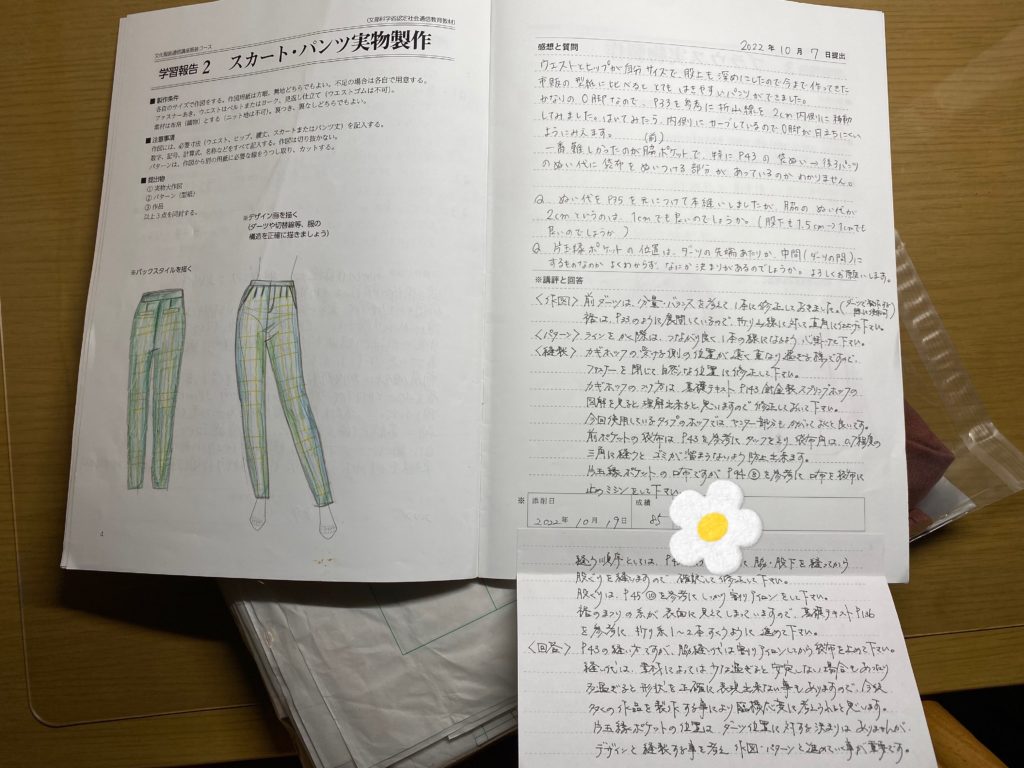 (文部科学省認定社会通信教育教材)
文化服装通信講座服装コース
学習報告 2 スカート・パンツ実物製作
■製作条件
各自のサイズで作図をする。作図用紙は方眼、無地どちらでもよい。不足の場合は各自で用意する。
ファスナーあき、ウエストはベルトまたはヨーク、見返し仕立て(ウエストゴムは不可)。
素材は布帛(織物)とする(ニット地は不可)。裏つき、裏なしどちらでもよい。
■注意事項
作図には、必要寸法(ウエスト、ヒップ、腰丈、スカートまたはパンツ丈)を記入する。
数字、記号、計算式、名称などをすべて記入する。作図は切り抜かない。
パターンは、作図から別の用紙に必要な線をうつし取り、カットする。
■提出物
① 実物大作図
② パターン(型紙)
③ 作品
以上3点を同封する。
※デザイン画を描く
(ダーツや切替線等、服の
構造を正確に描きましょう)
※バックスタイルを描く
4
感想と質問
2022年10月7日提出
ウエストとヒップが自分サイズで、股上も深めにしたので今まで作ってきた
市販の型紙に比べるととてもはきやすいパンツができました。
かなりのO脚なので、P33を参考に折山線を2cm内側に移動
してみました。はいてみたら、内側にカーブしているのでO脚が目立ちにくい
ようにみえます。 (前)
一番難しかったのが脇ポケットで、特にP43の袋ぬい→後ろパンツ
のぬい代に袋布をぬいつける部分があっているのかわかりません。
Q ぬい代をP35を元につけて本縫いしましたが、脇のぬい代が
2cmというのは、1cmでも良いのでしょうか。(股下も1.5cm→1cmでも
良いのでしょうか)
Q 片玉縁ポケットの位置は、ダーツの先端あたりか、中間(ダーツの間)に
するものなのかよくわからず、なにか決まりがあるのでしょうか。よろしくお願いします。
※講評と回答
〈作図〉前ダーツは、分量・バランスを考えて1本に修正しておきました。
裾は、P33のように展開しているので、折り山線に対して直角に仕上げ下さい。
〈パターン〉ラインをかく際は、つながり良く1本の線になるよう、心掛けて下さい。
〈縫製〉カギホックの受け側の位置が遠く重なり過ぎる様ですので、
ファスナーを閉じて自然な位置に修正して下さい。
カギホックのつけ方は、基礎テキストP143針金製スプリングホックの
図解を見ると理解出来ると思いますので修正しておいて下さい。
今回使用しているタイプのホックでは、センター部分もかがっておくと良いです。
前ポケットの袋布は、P43を参考にタックをとり、袋布角は、0.7程度の
三角に縫うとゴミが溜まらないよう防止出来ます。
片玉縁ポケットの口布ですが、P44⑧を参考に口布を袋布に
止めミシンをして下さい。
※
添削日
成績
2022年10月19日
85
縫う順序としては、 脇・股下を縫ってから
股ぐりを縫いますので、確認して修正して下さい。
股ぐりは、P45⑯を参考にしっかり割りアイロンをして下さい。
裾のまつりの糸が表面に見えてしまっていますので、基礎テキストP136
を参考に、折り糸1〜2本すくうように進めて下さい。
〈回答〉P43の縫い方ですが、脇縫い代は割りアイロンしてから袋布をとめて下さい。
縫い代は、素材によっては少な過ぎると安定しない場合もあったり
多過ぎると形状を正確に表現出来ない事もありますので、今後
多くの作品を製作する事により臨機応変に考えられると思います。
片玉縁ポケットの位置は、ダーツ位置に対する決まりはありませんが、
デザインと縫製する事を考え、作図・パターンと進めていく事が重要です。